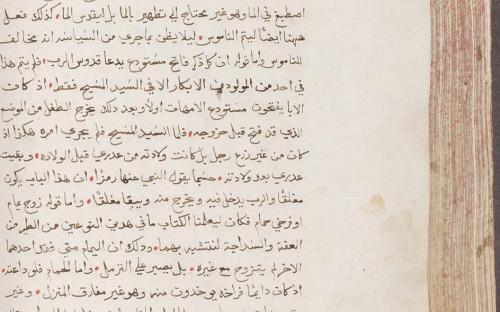 اصطبغ في الما وهو غير محتاج الي تطهير بالما بل ليقدس الما • كذلك فعل
ههنا ايضًا ليتم الناموس • ليلا يظن بما جري من السيد انه مخالف
للناموس واما قوله ان كل ذكر فاتح مستودع يدعا قدوس الرب • فلم يتم هذا
في احد من المولودين الابكار الا في السيد المسيح فقط • اذ كانت
الابا يفتحون مستودع الامهات اولًا وبعد ذلك يخرج الطفل من الموضع
الذي قد فتح قبل خروجه • فاما السيد المسيح فلم يجري امره هكذا اذ
كان من غير زرع رجل بل كانت ولادته من عدري قبل الولاده • وبقيت
عدري بعد ولادته • حسبما يقول النبي عنها رمزًا • ان هذا الباب يكون
مغلقًا والرب يدخل فيه ويخرج منه ويبقا مغلقًا • واما قوله زوج يمام
او فرخي حمام فكان ليعلمنا الكتاب ما في هدين النوعين من الطير من
العفة والسداجة لنتشبه بهما • ودلك ان اليمام متي فقد احدهما
الاخر لم يتزوج مع غيره • بل يصبر علي الترمل • واما الحمام فلوداعته •
اذ كان دايمًا فراخه يوخدون منه وهو غير مفارق المنزل • وغير